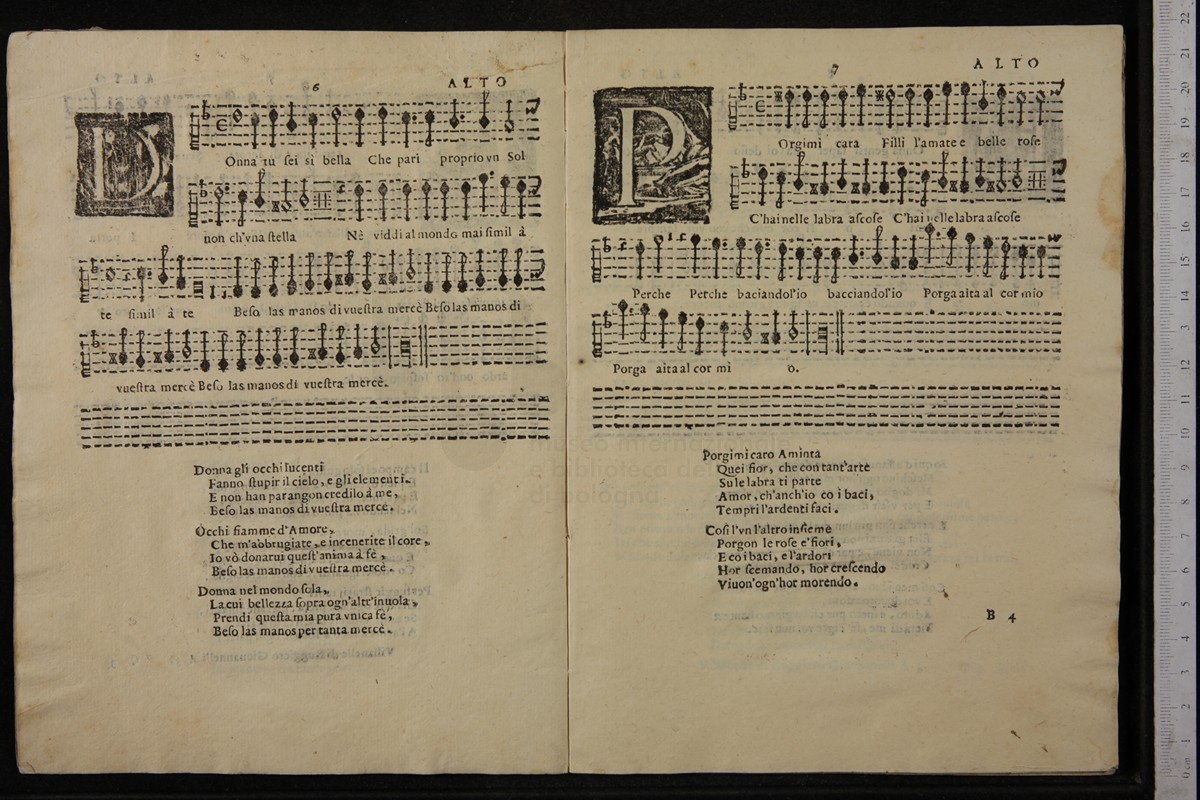 6
ALTO
DOnna tu sei sì bella Che pari proprio vn Sol
non ch'vna ſtella Nè viddi al mondo mai ſimil à
te ſimil à te Beſo las manos di vueſtra mercè Beſo las manos di
vueſtra mercè Beſo las manos di vueſtra mercè.
Donna gli occhi lucenti
Fanno ſtupir il cielo, e gli elementi.
E non han parangon credilo à me,
Beſo las manos di vueſtra mercè.
Occhi fiamme d'Amore,
Che m'abbrugiate, e incenerite il core,
Io vò donarui queſt'anima à fè,
Beſo las manos di vueſtra mercè.
Donna nel mondo ſola,
La cui bellezza ſopra ogn'altr'inuola,
Prendi queſta mia pura vnica fè,
Beſo las manos per tanta mercè.
7
ALTO
POrgimi cara Filli l'amate e belle roſe
C'hai nelle labra aſcoſe C'hai nelle labra aſcoſe
Perche Perche baciandol'io bacciandol'io Porga aita al cor mio
Porga aita al cor mi o.
Porgimi caro Aminta
Quei fior, che con tant'arte
Su le labra ti parte
Amor, ch'anch'io co i baci,
Tempri l'ardenti faci.
Coſi l'vn l'altro inſieme
Porgon le roſe e'fiori,
E co i baci, e l'ardori
Hor ſcemando, hor creſcendo
Viuon'ogn'hor morendo.
B 4
museo internazionale
e biblioteca della
di bologna
0 cm 1 2 3 4 5 6 7 8 9 10 11 12 13 14 15 16 17 18 19 20 21 22